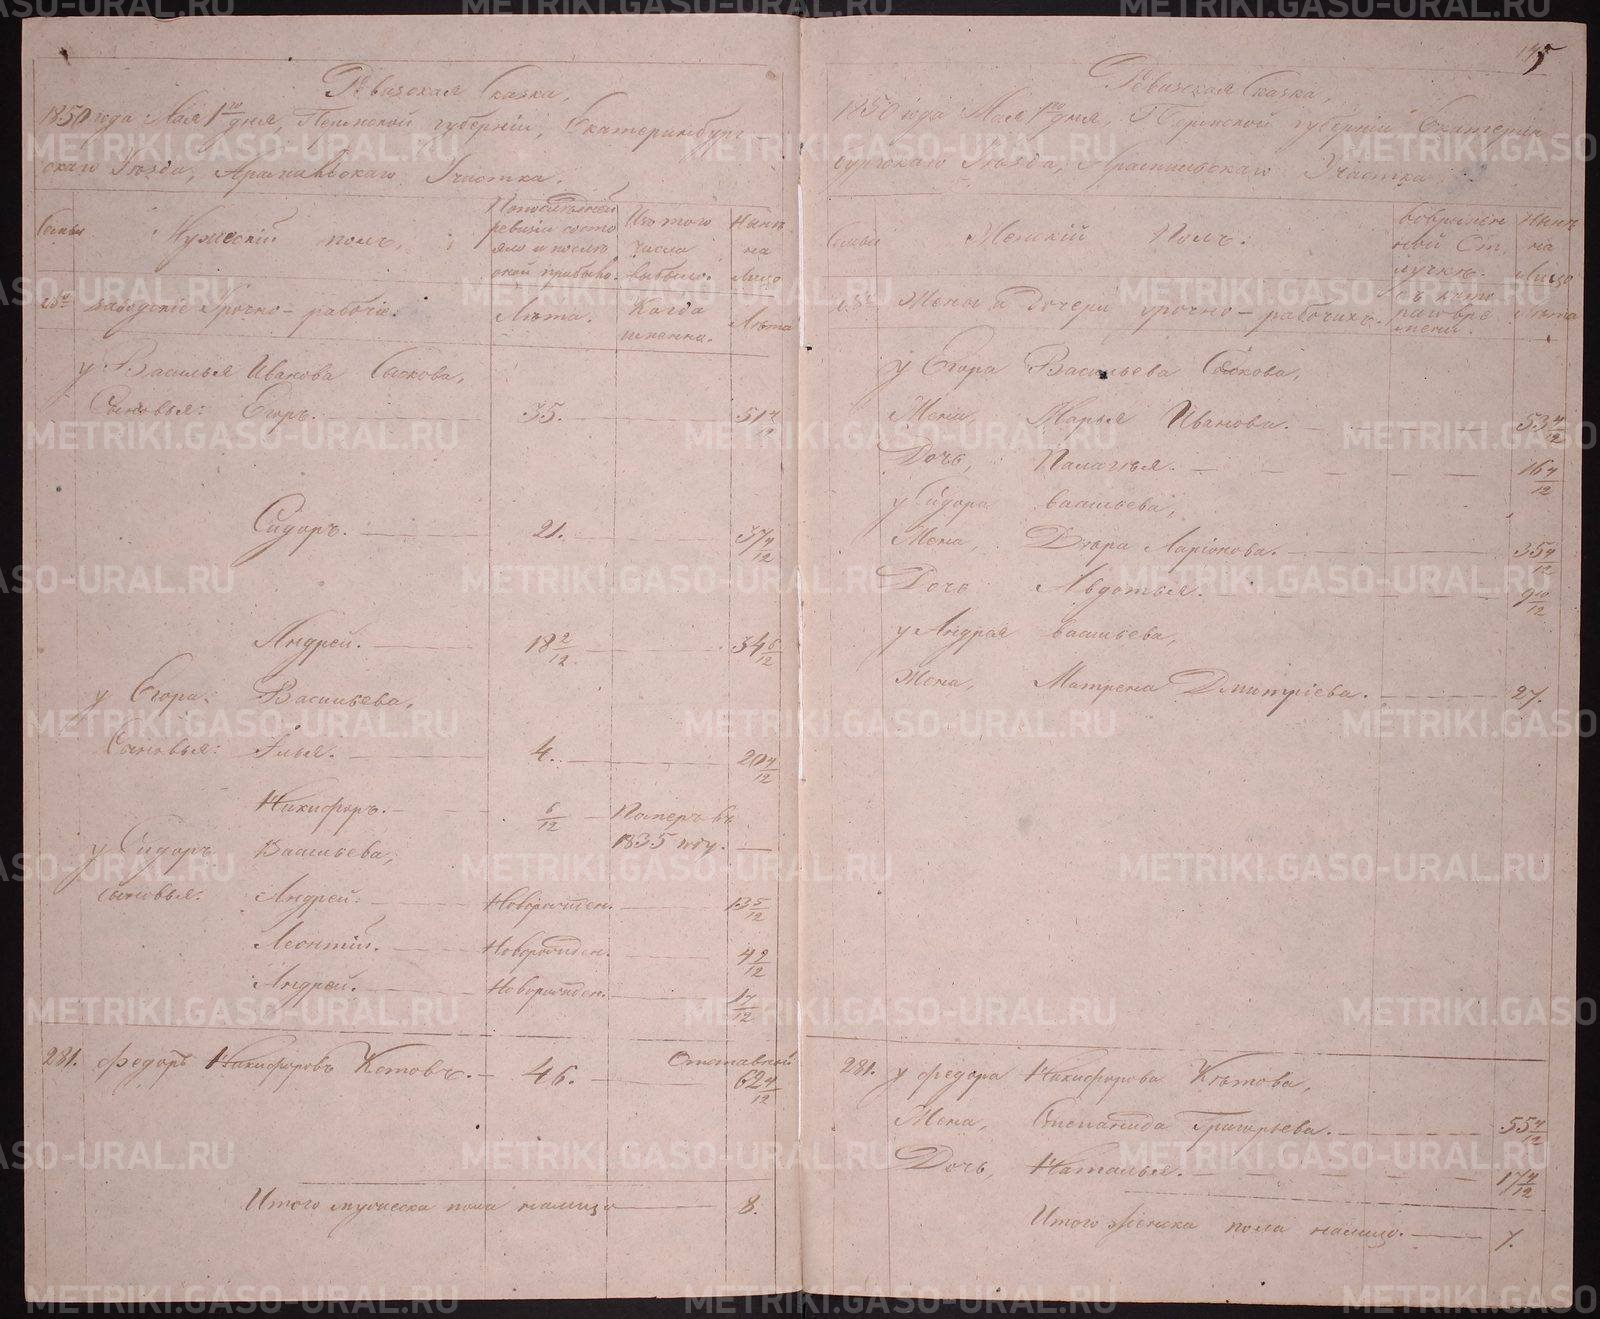 Ревизская Сказка,
1850 года Мая 1го дня, Пермской губерніи, Екатеринбург-
скаго Уѣзда, Арамильскаго Участка.
Семьи
Мужескій полъ,
По последней ревизіи состояло и послѣ оной прибыло.
Изъ того числа выбыло.
Нынѣ на лицо
Заводскіе Урочно-рабочіе.
Лѣта.
Когда именно.
Лѣта
у Василья Иванова Сынова,
Сыновья: Егоръ. 35. 51 4/12
Сидоръ. 21. 37 4/12
Андрей. 18 2/12 34 6/12
у Егора Васильева,
Сыновья: Илья. 4. 20 4/12
Никифоръ. 6/12 Померъ въ
1835 году.
у Сидора Васильева,
сыновья: Андрей. Новорожден. 13 5/12
Леонтій. Новорожден. 4 9/12
Андрей. Новорожден. 1 7/12
281. Федоръ Никифоровъ Котовъ. 46. Отставной
62 4/12
Итого мужеска пола налицо 8.
145
Ревизская Сказка,
1850 года Мая 1го дня, Пермской губерніи Екатерин
бургскаго Уѣзда, Арамильскаго Участка
Семьи
Женскій Полъ:
во временной отлучкѣ.
Нынѣ на Лицо
Жены и Дочери урочно-рабочихъ.
съ котораго времени.
Лѣта
у Егора Васильева
Жена, Марья Иванова. 53 4/12
Дочь, Палагѣя. 16 4/12
у Сидора Васильева,
Жена, Вѣра Ларіонова. 35 4/12
Дочь Авдотья. 9 10/12
у Андрея Васильева,
Жена, Матрена Дмитріева. 27.
281. у Федора Никифорова Котова,
Жена, Степанида Григорьева. 55 4/12
Дочь, Наталья. 17 4/12
Итого женска пола налицо. 7.
METRIKI.GASO-URAL.RU